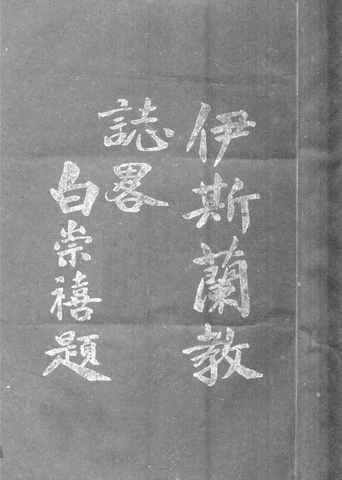 伊斯蘭教
誌畧
白崇禧題